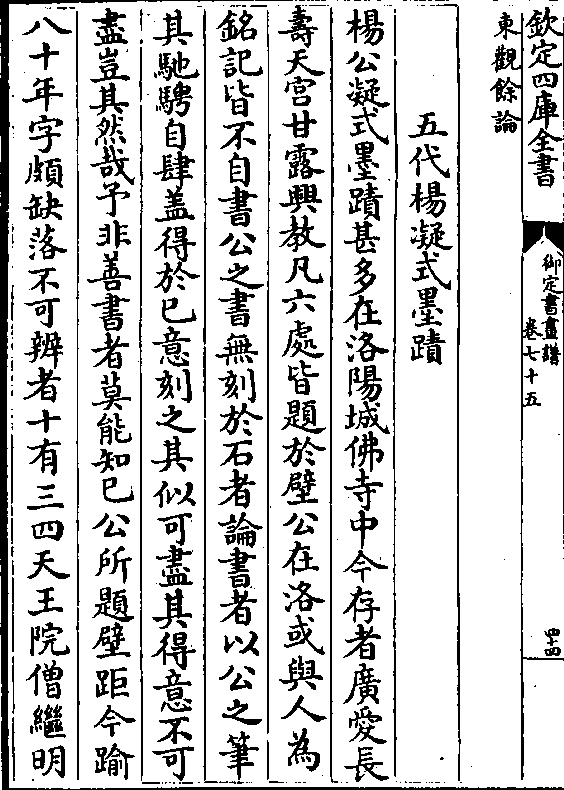 欽定四庫全書
御定書畫譜
卷七十五
四十四
東觀餘論
五代楊凝式墨蹟
楊公凝式墨蹟甚多在洛陽城佛寺中今存者廣愛長
壽天宫甘露興教凡六處皆題於壁公在洛或與人為
銘記皆不自書公之書無刻於石者論書者以公之筆
其馳騁自肆盖得於已意刻之其似可盡其得意不可
盡豈其然哉予非善書者莫能知已公所題壁距今踰
八十年字頗缺落不可辨者十有三四天王院僧繼明